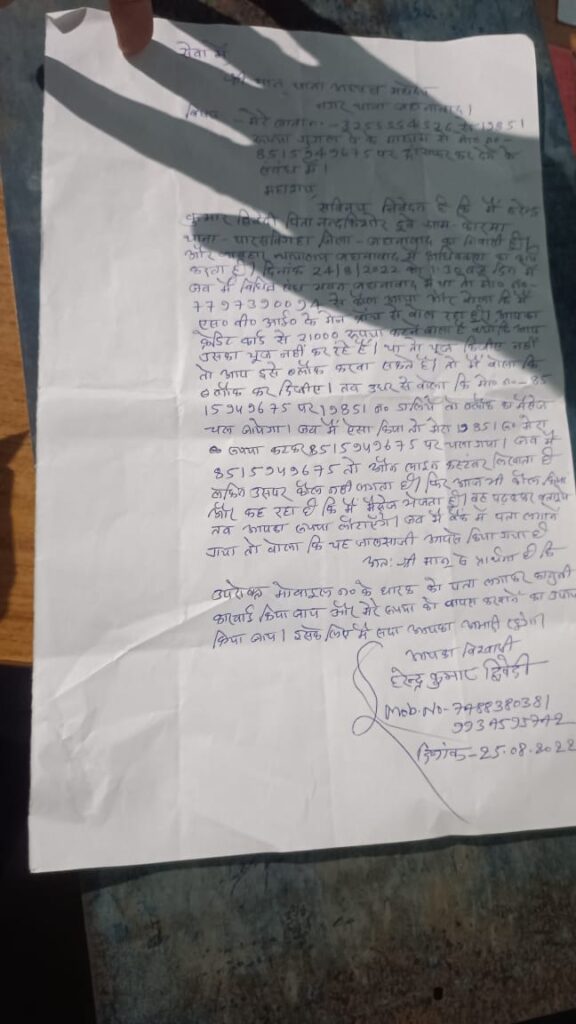 सेवा में,
श्री मान् थाना अध्यक्ष महोदय
नगर थाना जहानाबाद।
विषय - मेरे
रूपया गुगल पे के माध्यम से मो० no-
8515949675 पर ट्रांसफर कर लेने के
संबंध में।
महाशय,
सविनय निवेदन है कि मैं हरेन्द्र
कुमार द्विवेदी पिता नन्दकिशोर दुबे ग्राम-
थाना - जिला - जहानाबाद का निवासी हूँ।
और व्यवहार न्यायालय जहानाबाद में अधिवक्ता का कार्य
करता हूँ। दिनांक 24/8/2022 को दिन में
जब मैं विधिज्ञ संघ भवन जहानाबाद में था तो मो० no-
7797390094 से फोन आया और बोला कि मैं
एस० बी० आई० के मेन ब्रांच से बोल रहा हूँ। आपका
क्रेडिट कार्ड से 21000 रूपया कटने वाला है क्योंकि आप
उसका यूज नहीं कर रहे हैं। या तो यूज किजीए नहीं
तो आप इसे ब्लॉक करवा सकते हैं। तो मैं बोला कि
ब्लॉक कर दिजीए। तब उधर से बोला कि मो० no- 85
15949675 पर 19851 no डालिये तो ब्लॉक का मैसेज
चल जायेगा। जब मैं ऐसा किया तो मेरा 19851 रु० मेरा
रूपया कटकर 8515949675 पर चला गया। जब मैं
8515949675 तो ऑन लाइन कस्टमर लिखता है
लेकिन उसपर कॉल नहीं लगता है। फिर आज भी कॉल किया
और कह रहा है कि मैं मैसेज भेजता हूँ। वह पढ़कर
तब आपका रूपया लौटाएँगे। जब मैं बैंक में पता लगाने
गया तो बोला कि यह जालसाजी आपसे किया गया है
अतः श्री मान् से प्रार्थना है कि
उपरोक्त मोबाइल no के धारक को पता लगाकर कानूनी
कारवाई किया जाय और मेरे रूपया को वापस करवाने का उपाय
किया जाय। इसके लिए मैं सदा आपका आभारी रहूँगा।
आपका विश्वासी
हरेन्द्र कुमार द्विवेदी
Mob. No- 7488380381
9934595742
दिनांक - 25.08.2022